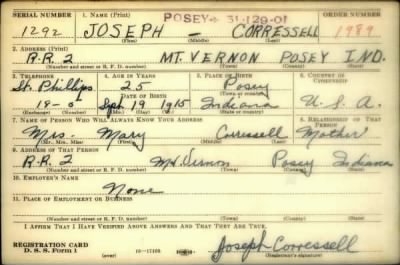 SERIAL NUMBER 1. NAME (Print) POSEY 31-129-01 ORDER NUMBER
1292 JOSEPH - CORRESSELL 1989
(First) (Middle) (Last)
2. ADDRESS (Print)
R.R. 2 MT. VERNON POSEY IND.
(Number and street or R. F. D. number) (Town) (County) (State)
3. TELEPHONE 4. AGE IN YEARS 5. PLACE OF BIRTH 6. COUNTRY OF CITIZENSHIP
St. Phillips 25 Posey
DATE OF BIRTH (Town or county)
Sept 19 1915 Indiana U.S.A.
(Mo.) (Day) (Yr.) (State or country)
7. NAME OF PERSON WHO WILL ALWAYS KNOW YOUR ADDRESS 8. RELATIONSHIP OF THAT PERSON
Mrs. Mary Corressell Mother
(Mr., Mrs., Miss) (First) (Middle) (Last)
9. ADDRESS OF THAT PERSON
R.R. 2 Mt. Vernon Posey Indiana
(Number and street or R. F. D. number) (Town) (County) (State)
10. EMPLOYER'S NAME
None
11. PLACE OF EMPLOYMENT OR BUSINESS
(Number and street or R. F. D. number) (Town) (County) (State)
I AFFIRM THAT I HAVE VERIFIED ABOVE ANSWERS AND THAT THEY ARE TRUE.
REGISTRATION CARD
D. S. S. Form 1 (over) Joseph Corressell
(Registrant's signature)